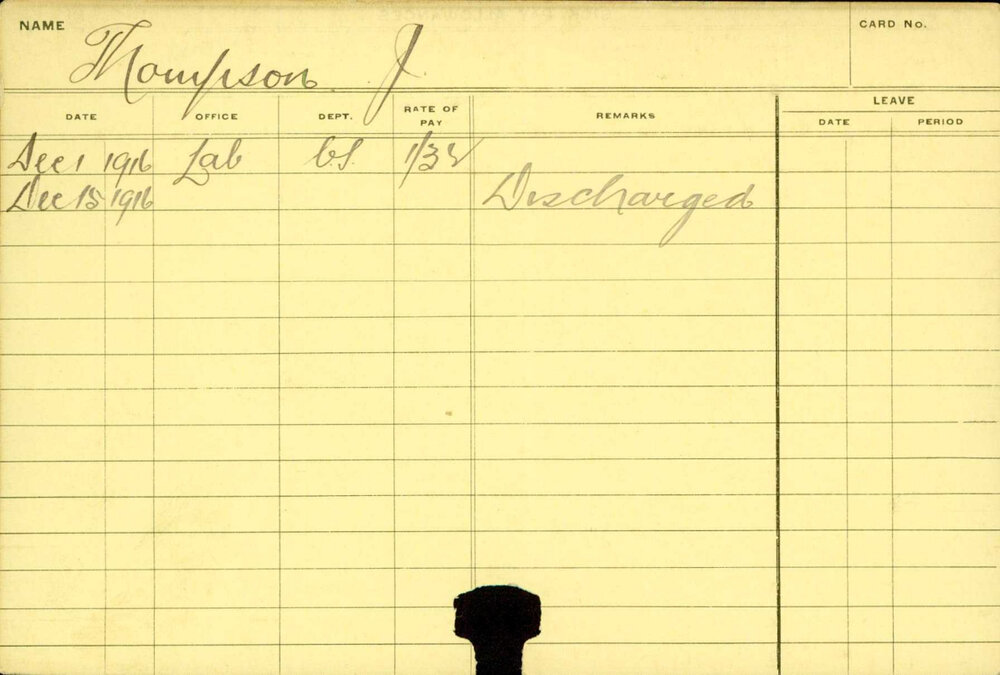 NAME Thompson J. CARD No.
LEAVE
DATE OFFICE DEPT. RATE OF PAY REMARKS DATE PERIOD
Dec 1 1916 Lab
Dec 15 1916 Discharged